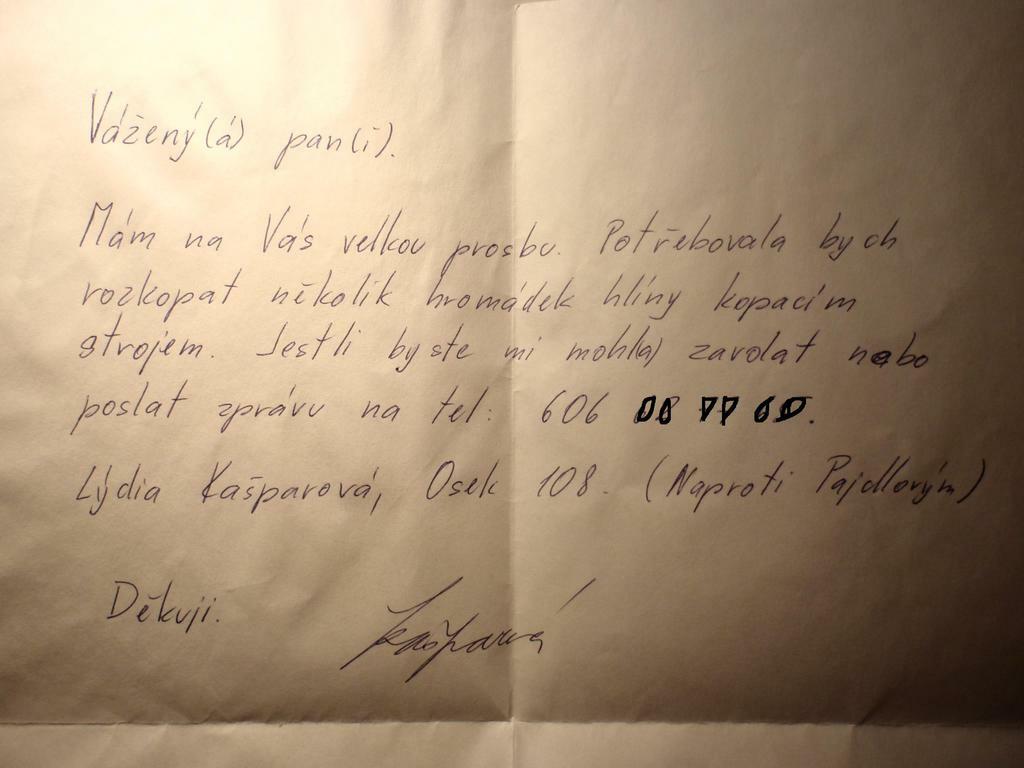 Vážený(á) pan(í).
Mám na Vás velkou prosbu. Potřebovala bych
rozkopat několik hromádek hlíny kopacím
strojem. Jestli byste mi mohl(a) zavolat nebo
poslat zprávu na tel: 606
Lýdia Kašparová, Osek 108. (Naproti Pajdlovým)
Děkuji. Kašparová